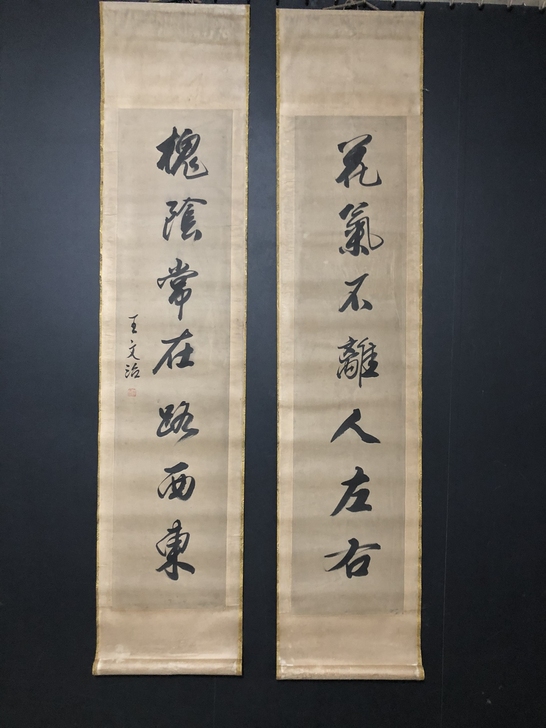 花氣不離人左右
槐陰常在路西東
王文治